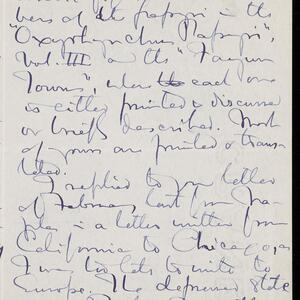 bers of the papyri in the
"Oxyrhynchus Papyri",
Vol. III and the "Fayum
Towns", where each one
is either printed & discussed
or briefly described. Most
of yours are printed & trans-
lated.
I replied to your letter
of February last from Na-
ples in a letter written from
California to Chicago, as
I was too late to write to
Europe. The depressed state